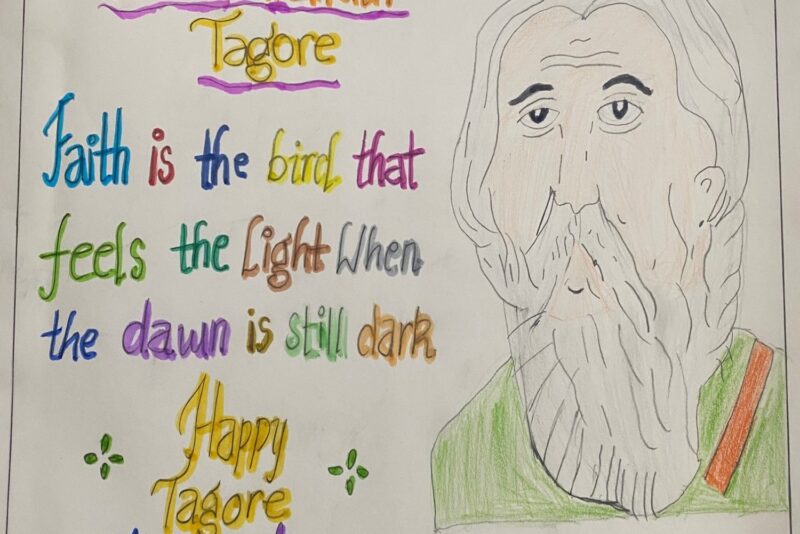 Tagore
Faith is the bird that
feels the Light When
the dawn is still dark
Happy
Tagore